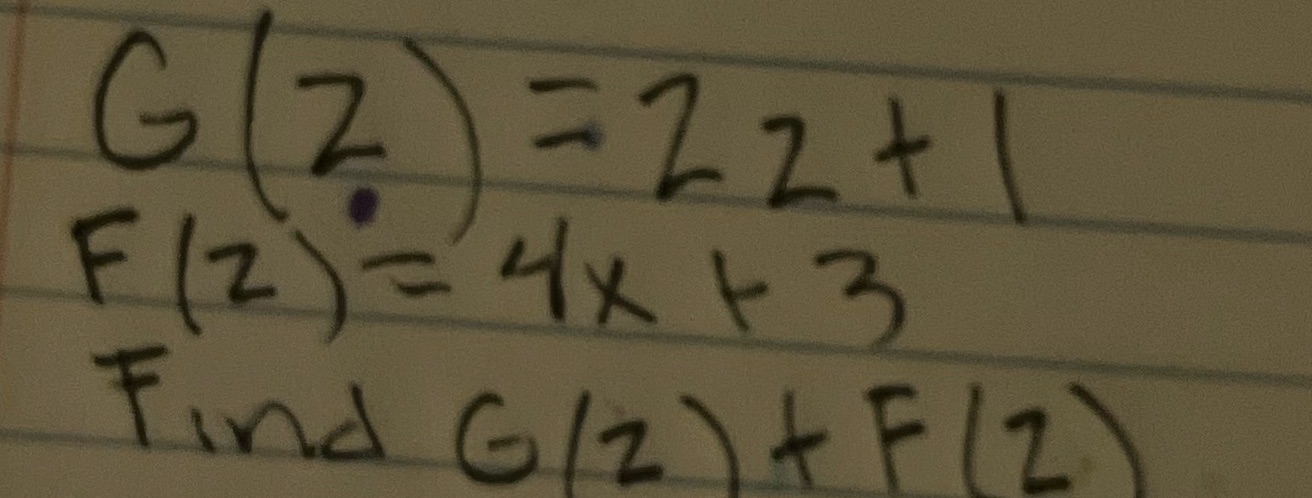 G(z) = 2z + 1
F(z) = 4x + 3
Find G(z) + F(z)